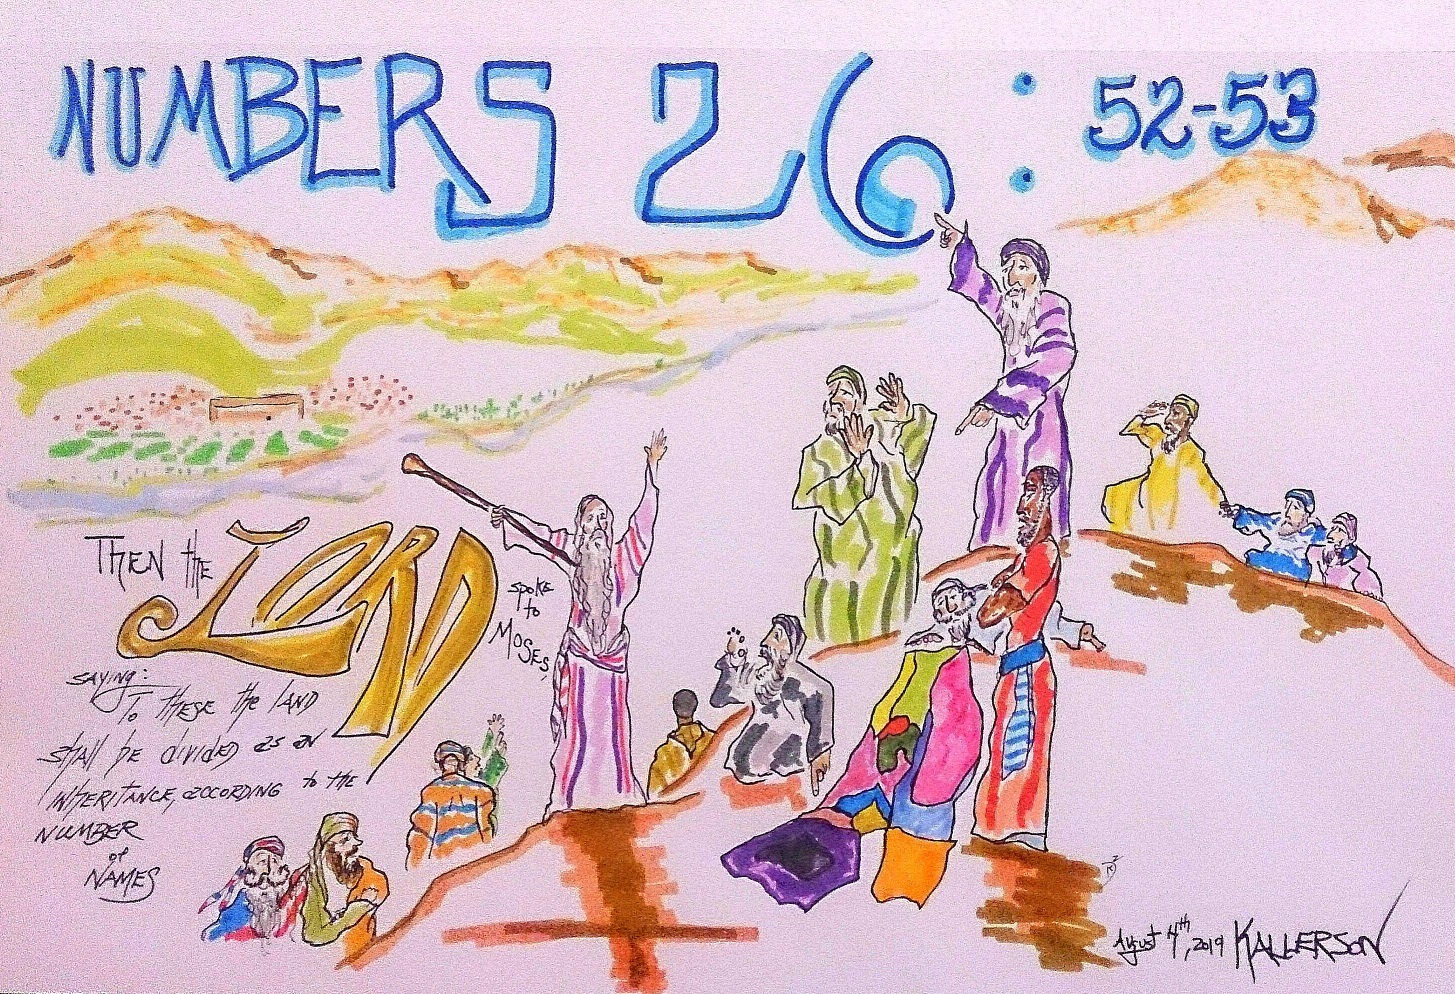 NUMBERS 26:52-53
THEN the LORD spoke
to
MOSES,
saying:
To THESE the LAND
shall be divided as an
INHERITANCE, ACCORDING to the
NUMBER
of
NAMES
August 4th, 2019 KALLERSON